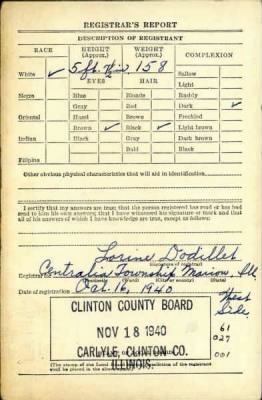 REGISTRAR'S REPORT
DESCRIPTION OF REGISTRANT
RACE HEIGHT (Approx.) WEIGHT (Approx.) COMPLEXION
White ✓ 5 ft. 158 Sallow
EYES HAIR Light
Negro Blue Blonde Ruddy
Gray Red Dark ✓
Oriental Hazel Brown Freckled
Brown ✓ Black ✓ Light brown
Indian Black Gray Dark brown
Bald Black
Filipino
Other obvious physical characteristics that will aid in identification
I certify that my answers are true; that the person registered has read or has had
read to him his own answers; that I have witnessed his signature or mark and that
all of his answers of which I have knowledge are true, except as follows:
Lorine Dodillet
(Signature of registrar)
Registrar for Centralia Township Marion, Ill.
Date of registration Oct. 16, 1940 West
Side,
CLINTON COUNTY BOARD
61
NOV 18 1940
027
CARLYLE, CLINTON CO.
001
ILLINOIS.